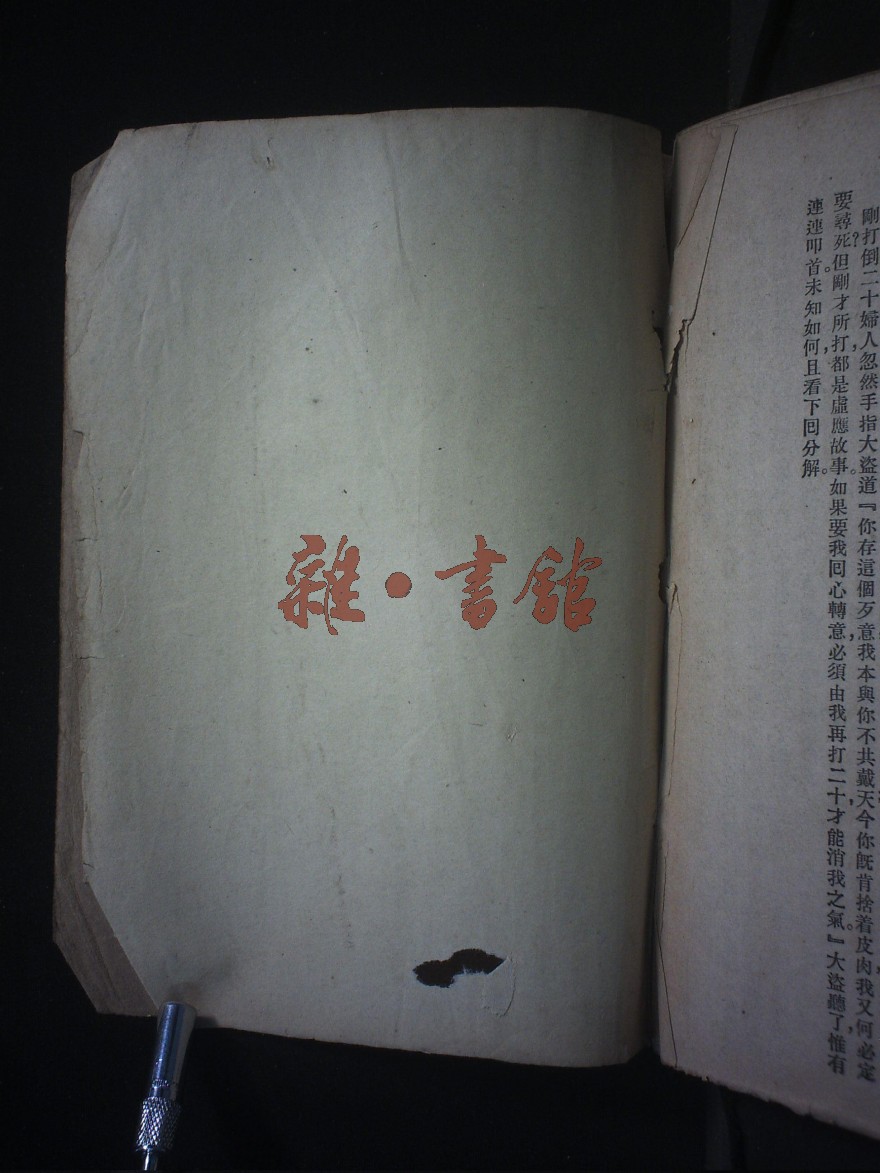 剛打倒二十婦人忽然手指大盜道『你存這個歹意我本與你不共戴天今你旣肯捨着皮肉我又何必定
要尋死但剛才所打都是虛應故事如果要我回心轉意必須由我再打二十才能消我之氣』大盜聽了惟有
連連叩首未知如何且看下回分解
雜•書館